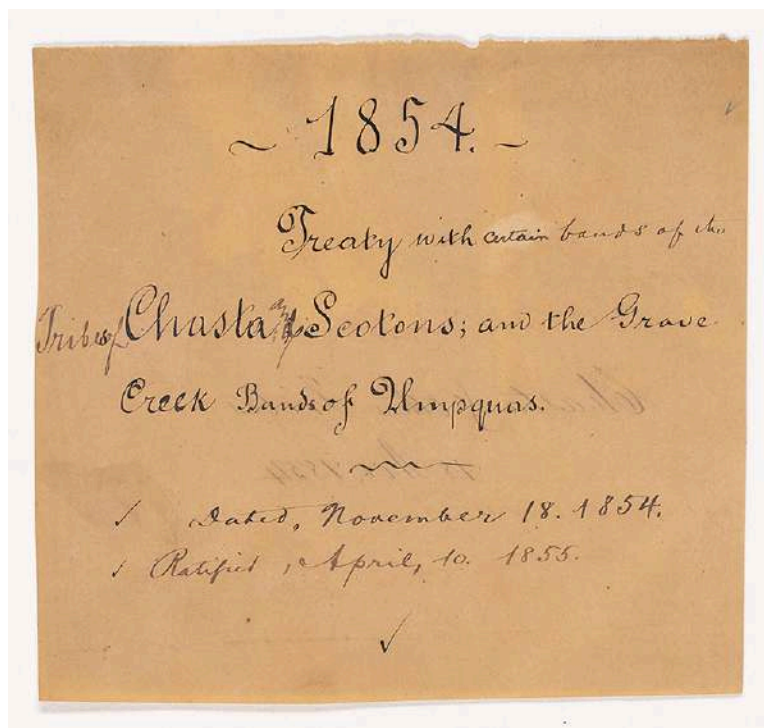 ~ 1854. ~
Treaty with certain bands of the
Tribes of Chasta and Scotons; and the Grave
Creek Bands of Umpquas.
Dated, November 18. 1854.
Ratified, April, 10. 1855.